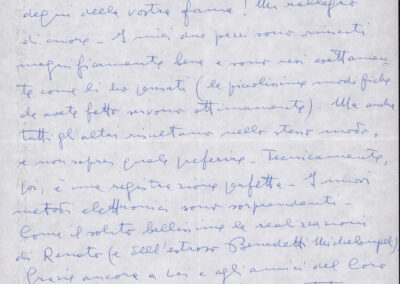 degni della vostra fama! Mi rallegro
di cuore - I miei due pezzi sono riusciti
magnificamente bene e sono resi esattamen-
te come li ho pensati (le piccolissime modifiche
da avete fatto servono ottimamente). Ma anche
tutti gli altri risultano nello stesso modo,
e non saprei quale preferire - Tecnicamente,
poi, è una registrazione perfetta - I nuovi
metodi elettronici sono sorprendenti -
Come il solito bellissime le realizzazioni
di Renato (e dell'estroso Benedetti Michelangeli).
Grazie ancora a Lei e agli amici del Coro